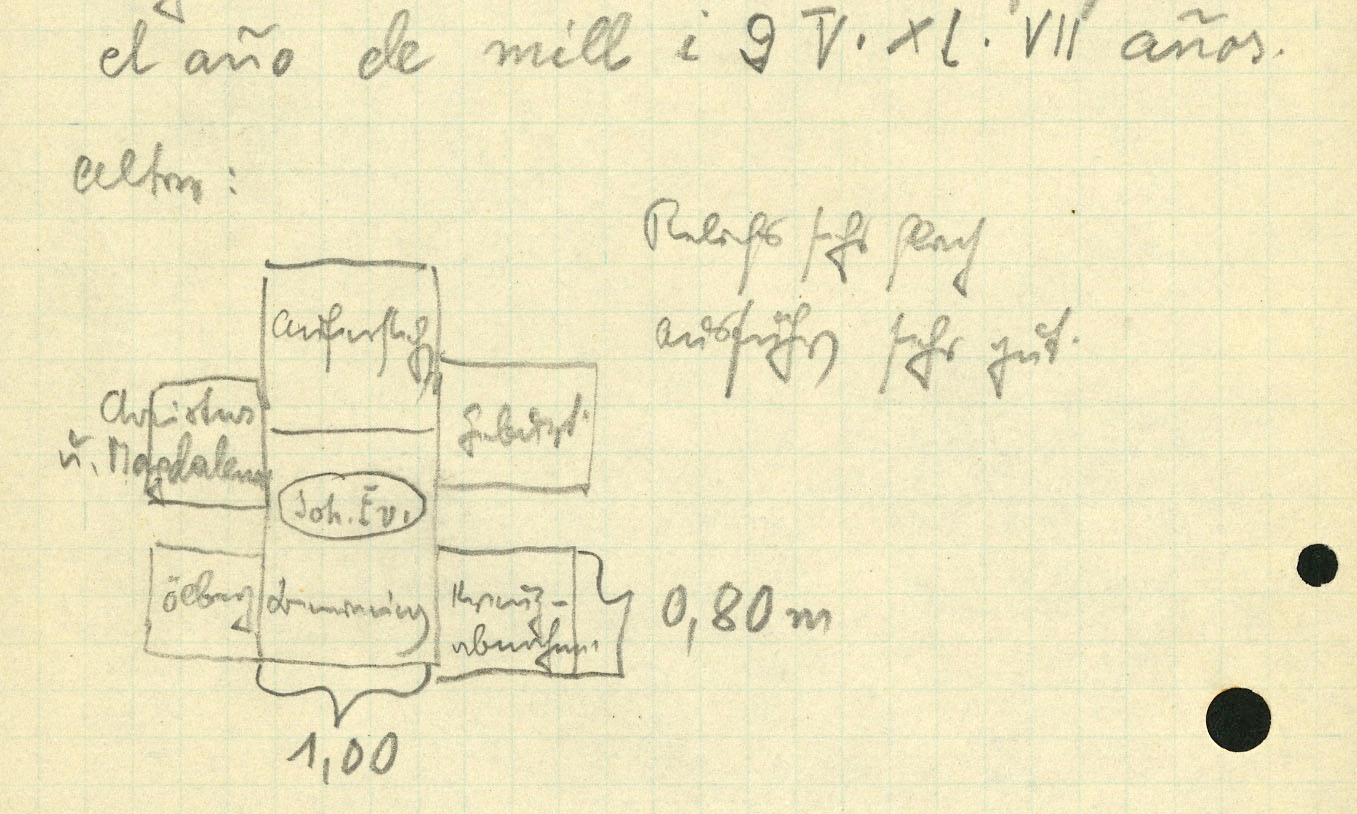 el año de mill i 9 V. XL. VII años.
Altar:
Reliefs sehr flach
Ausführg sehr gut.
Auferstehg
Christus
u. Magdalena
Geburt
Joh. Ev.
Ölberg
Kreuz-
abnahme
0,80 m
1,00